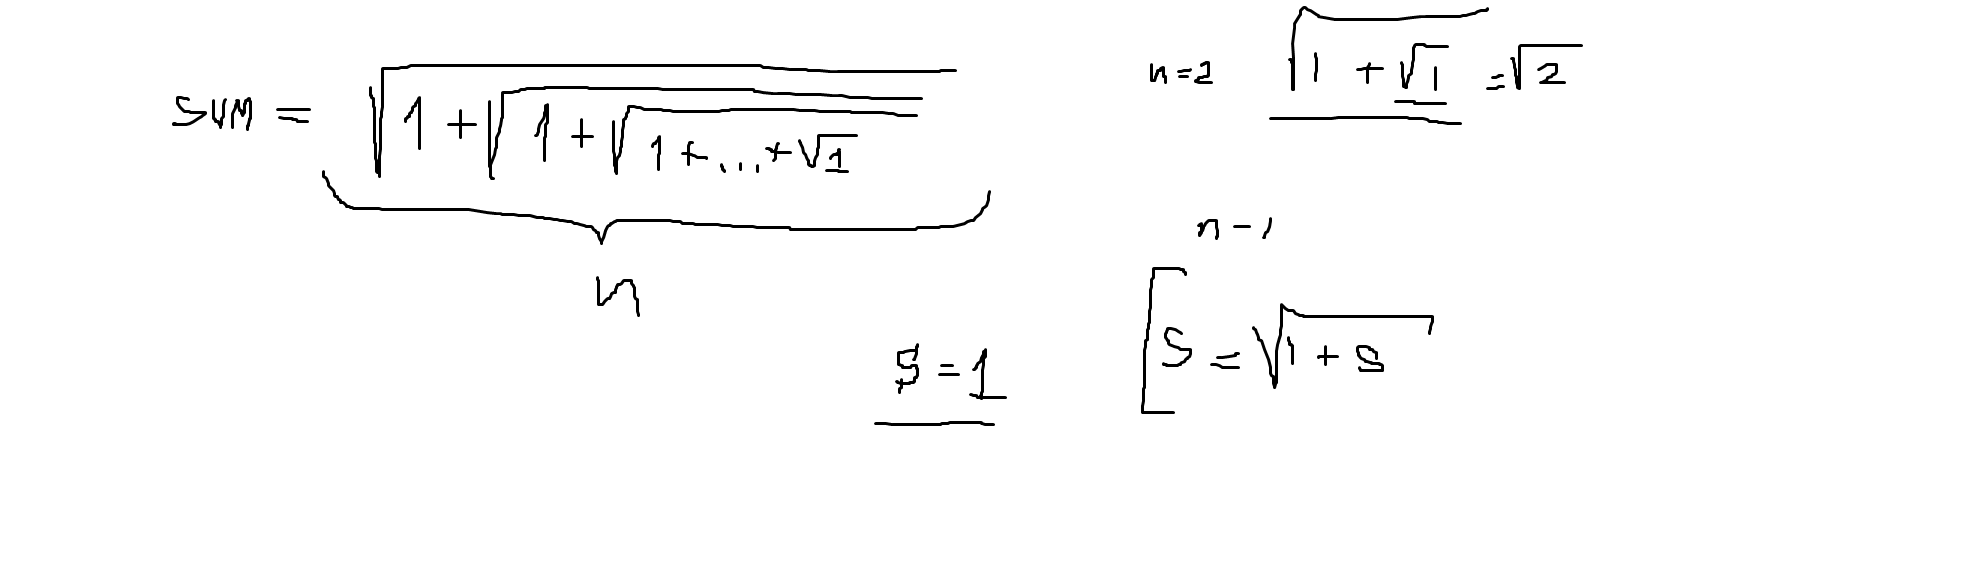 SUM = √(1 + √(1 + √(1 + ... + √1)))
n
n=2 √(1 + √1) = √2
n - 1
S = √(1 + S)
S = 1